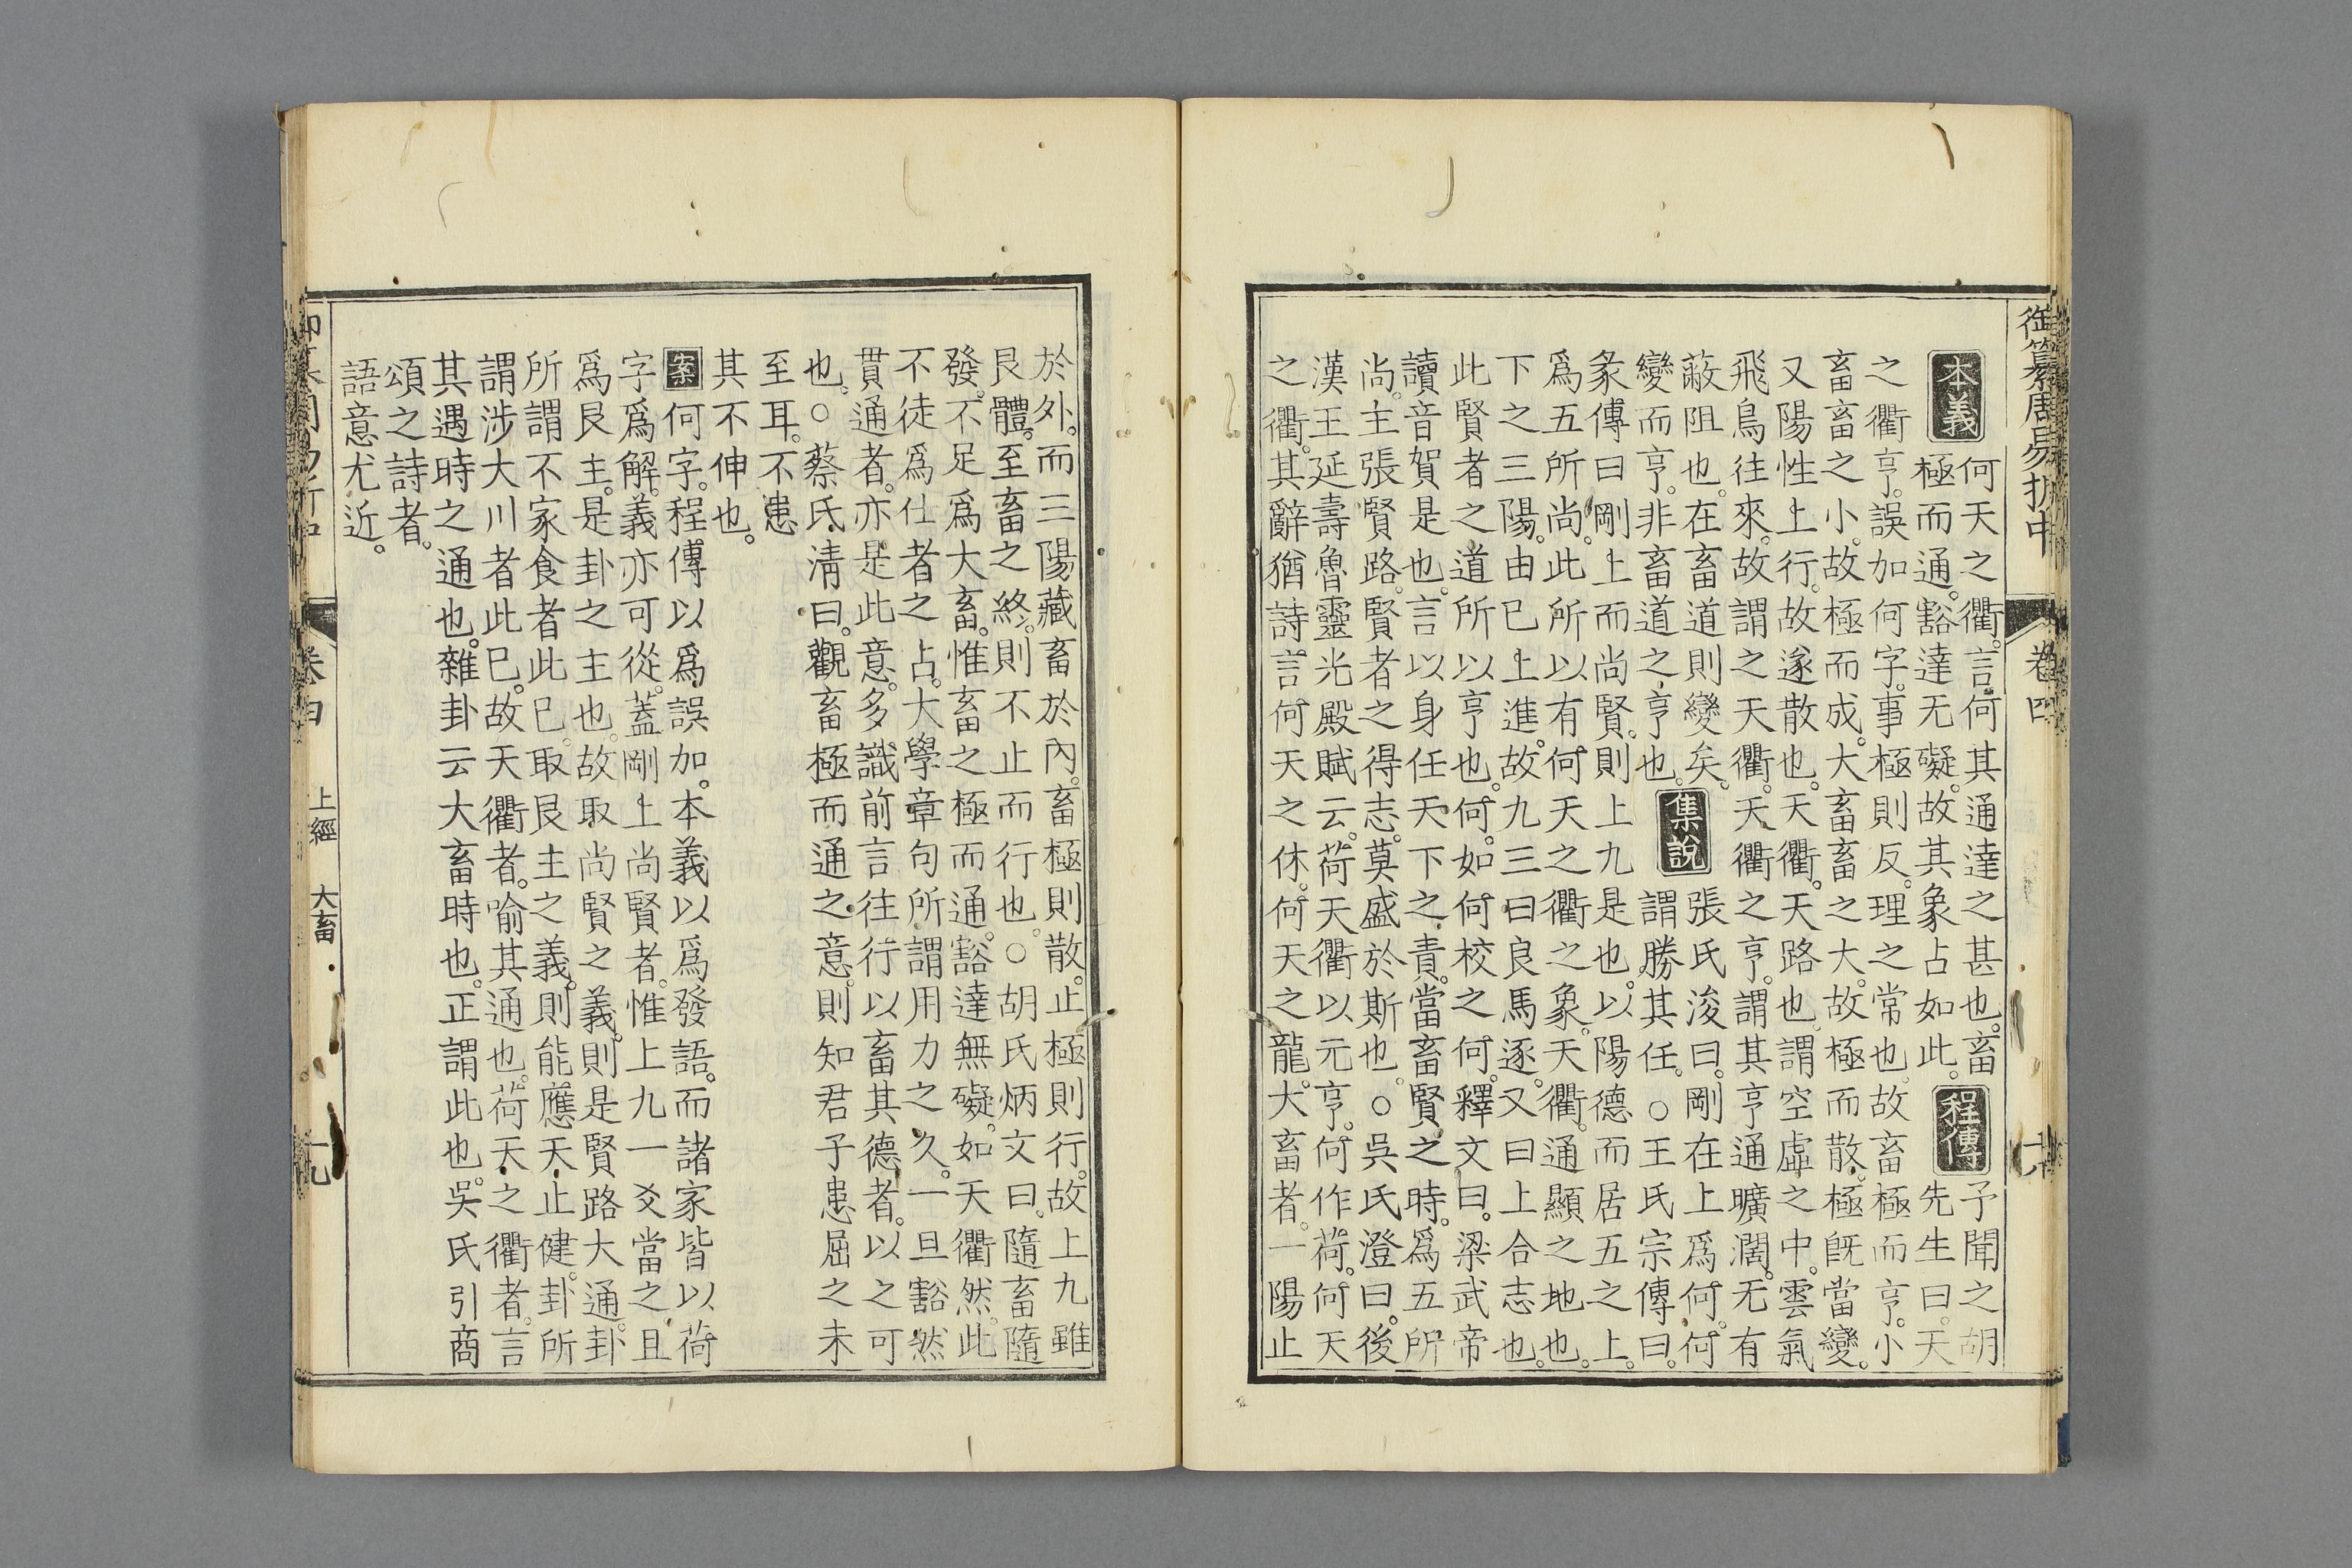 御纂周易折中 卷四
本義
何天之衢。言何其通達之甚也。畜
極而通。豁達无礙。故其象占如此。
程傳
予聞之胡
先生曰。天
之衢亨。誤加何字。事極則反。理之常也。故畜極而亨。小
畜畜之小。故極而成。大畜畜之大。故極而散。極旣當變。
又陽性上行。故遂散也。天衢。天路也。謂空虛之中。雲氣
飛鳥往來。故謂之天衢。天衢之亨。謂其亨通曠濶。无有
蔽阻也。在畜道則變矣。
變而亨。非畜道之亨也。
集說
張氏浚曰。剛在上爲何。何
謂勝其任。○王氏宗傳曰。
彖傳曰剛上而尚賢。則上九是也。以陽德而居五之上。
爲五所尚。此所以有何天之衢之象。天衢。通顯之地也。
下之三陽。由巳上進。故九三曰良馬逐。又曰上合志也。
此賢者之道所以亨也。何。如何校之何。釋文曰。梁武帝
讀音賀是也。言以身任天下之責。當畜賢之時。爲五所
尚。主張賢路。賢者之得志。莫盛於斯也。○吳氏澄曰。後
漢王延壽魯靈光殿賦云。荷天衢以元亨。何作荷。何天
之衢。其辭猶詩言何天之休。何天之龍。大畜者。一陽止
於外。而三陽藏畜於內。畜極則散。止極則行。故上九雖
艮體。至畜之終。則不止而行也。○胡氏炳文曰。隨畜隨
發。不足爲大畜。惟畜之極而通。豁達無礙。如天衢然。此
不徒爲仕者之占。大學章句所謂用力之久。一旦豁然
貫通者。亦是此意。多識前言往行以畜其德者。以之可
也。○蔡氏淸曰。觀畜極而通之意。則知君子患屈之未
至耳。不患
其不伸也。
案
何字。程傳以爲誤加。本義以爲發語。而諸家皆以荷
字爲解。義亦可從。蓋剛上尚賢者。惟上九一爻當之。且
爲艮主。是卦之主也。故取尚賢之義。則是賢路大通。卦
所謂不家食者此巳。取艮主之義。則能應天止健。卦所
謂涉大川者此巳。故天衢者。喻其通也。荷天之衢者。言
其遇時之通也。雜卦云大畜時也。正謂此也。吳氏引商
頌之詩者。
語意尤近。
卷四 上經 大畜